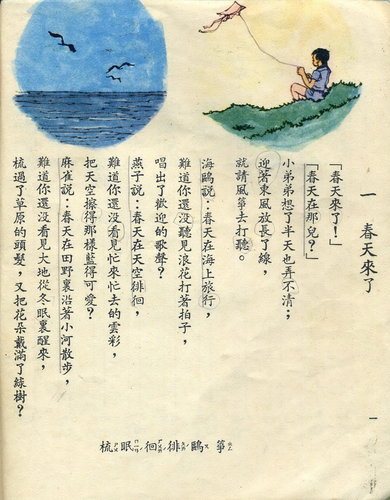 一 春天來了
「春天來了！」
「春天在那兒？」
小弟弟想了半天也弄不清；
迎著東風放長了線，
就請風箏去打聽。
海鷗說：春天在海上旅行，
難道你還沒聽見浪花打著拍子，
唱出了歡迎的歌聲？
燕子說：春天在天空徘徊，
難道你還沒看見忙來忙去的雲彩，
把天空擦得那樣藍得可愛？
麻雀說：春天在田野裏沿著小河散步，
難道你還沒看見大地從冬眠裏醒來，
梳過了草原的頭髮，又把花朵戴滿了綠樹？
箏 鷗 徘 徊 眠 梳
一